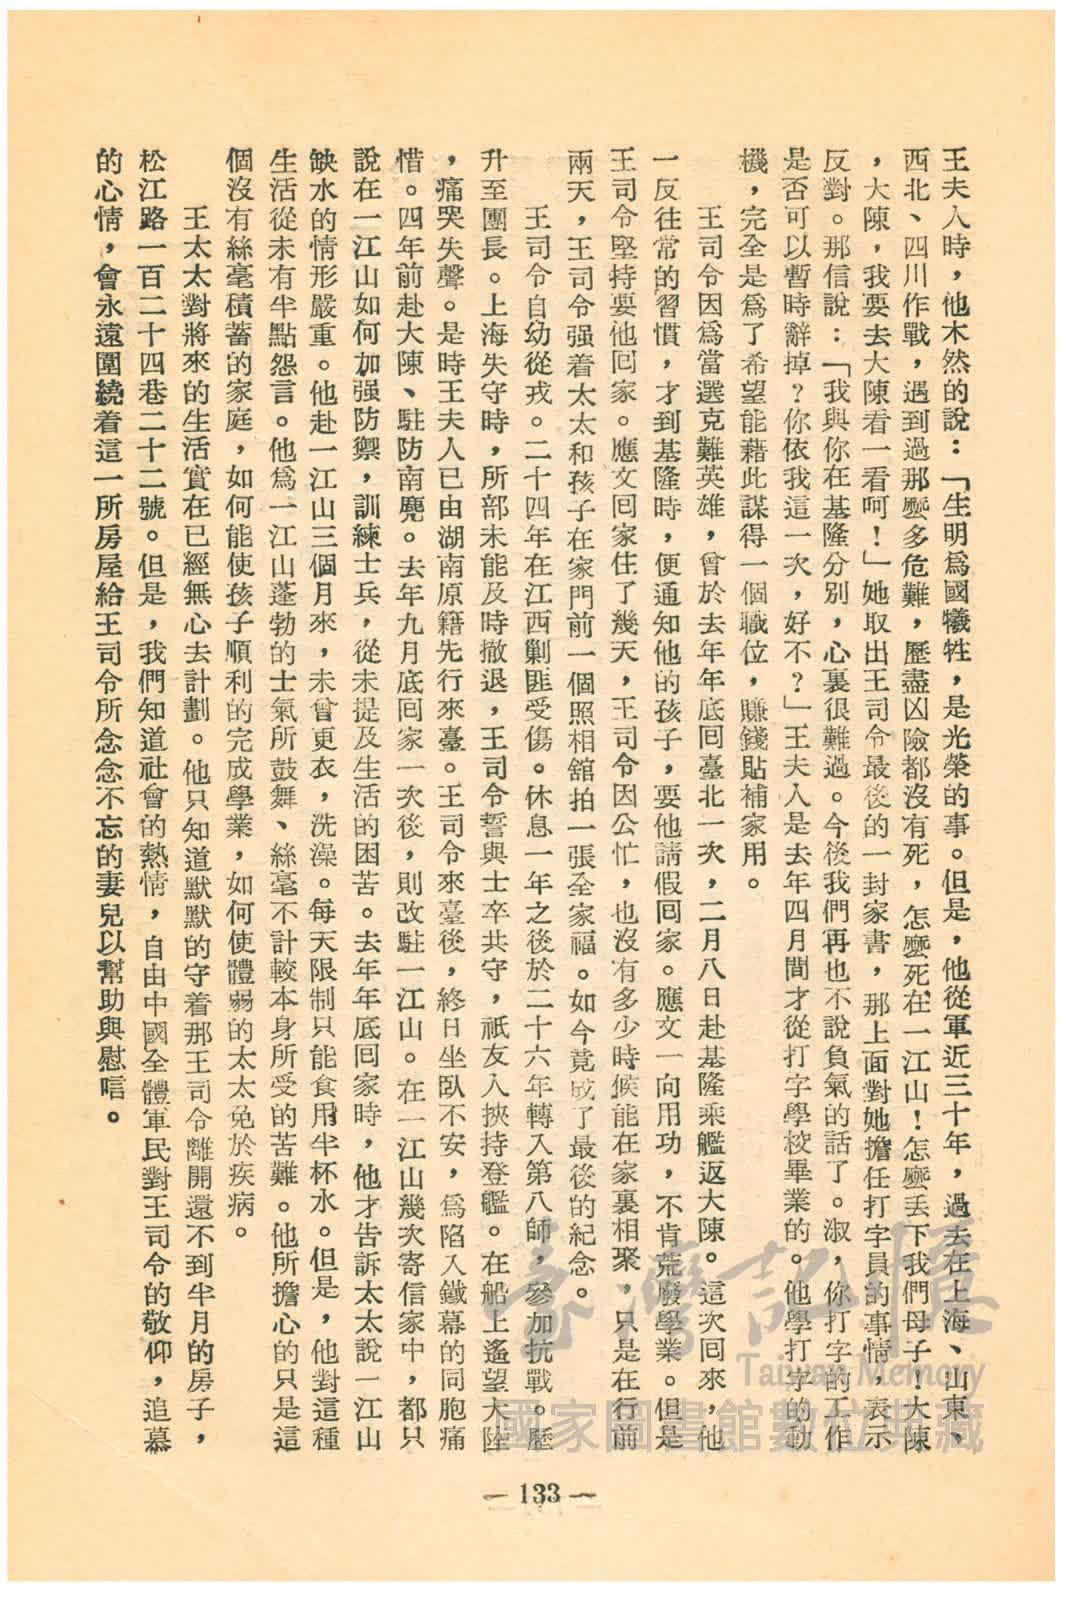 王夫人時，他木然的說：「生明爲國犧牲，是光榮的事。但是，他從軍近三十年，過去在上海、山東、
西北、四川作戰，遇到過那麼多危難，歷盡凶險都沒有死，怎麼死在一江山！怎麼丢下我們母子！大陳
，大陳，我要去大陳看一看呵！」她取出王司令最後的一封家書，那上面對她擔任打字員的事情，表示
反對。那信說：「我與你在基隆分別，心裏很難過。今後我們再也不說負氣的話了。淑，你打字的工作
是否可以暫時辭掉？你依我這一次，好不？」王夫人是去年四月間才從打字學校畢業的。他學打字的動
機，完全是爲了希望能藉此謀得一個職位，賺錢貼補家用。
王司令因爲當選克難英雄，曾於去年年底回臺北一次，二月八日赴基隆乘艦返大陳。這次回來，他
一反往常的習慣，才到基隆時，便通知他的孩子，要他請假回家。應文一向用功，不肯荒廢學業。但是
王司令堅持要他回家。應文回家住了幾天，王司令因公忙，也沒有多少時候能在家裏相聚，只是在行前
兩天，王司令强着太太和孩子在家門前一個照相舘拍一張全家福。如今竟成了最後的紀念。
王司令自幼從戎。二十四年在江西剿匪受傷。休息一年之後於二十六年轉入第八師，參加抗戰。歷
升至團長。上海失守時，所部未能及時撤退，王司令誓與士卒共守，祇友人挾持登艦。在船上遙望大陸
，痛哭失聲。是時王夫人已由湖南原籍先行來臺。王司令來臺後，終日坐臥不安，爲陷入鐵幕的同胞痛
惜。四年前赴大陳、駐防南麂。去年九月底回家一次後，則改駐一江山。在一江山幾次寄信家中，都只
說在一江山如何加强防禦，訓練士兵，從未提及生活的困苦。去年年底回家時，他才告訴太太說一江山
缺水的情形嚴重。他赴一江山三個月來，未曾更衣，洗澡。每天限制只能食用半杯水。但是，他對這種
生活從未有半點怨言。他爲一江山蓬勃的士氣所鼓舞、絲毫不計較本身所受的苦難。他所擔心的只是這
個沒有絲毫積蓄的家庭，如何能使孩子順利的完成學業，如何使體弱的太太免於疾病。
王太太對將來的生活實在已經無心去計劃。他只知道默默的守着那王司令離開還不到半月的房子，
松江路一百二十四巷二十二號。但是，我們知道社會的熱情，自由中國全體軍民對王司令的敬仰，追慕
的心情，會永遠圍繞着這一所房屋給王司令所念念不忘的妻兒以幫助與慰唁。
— 133 —
臺灣記憶
Taiwan Memory
國家圖書館數位典藏